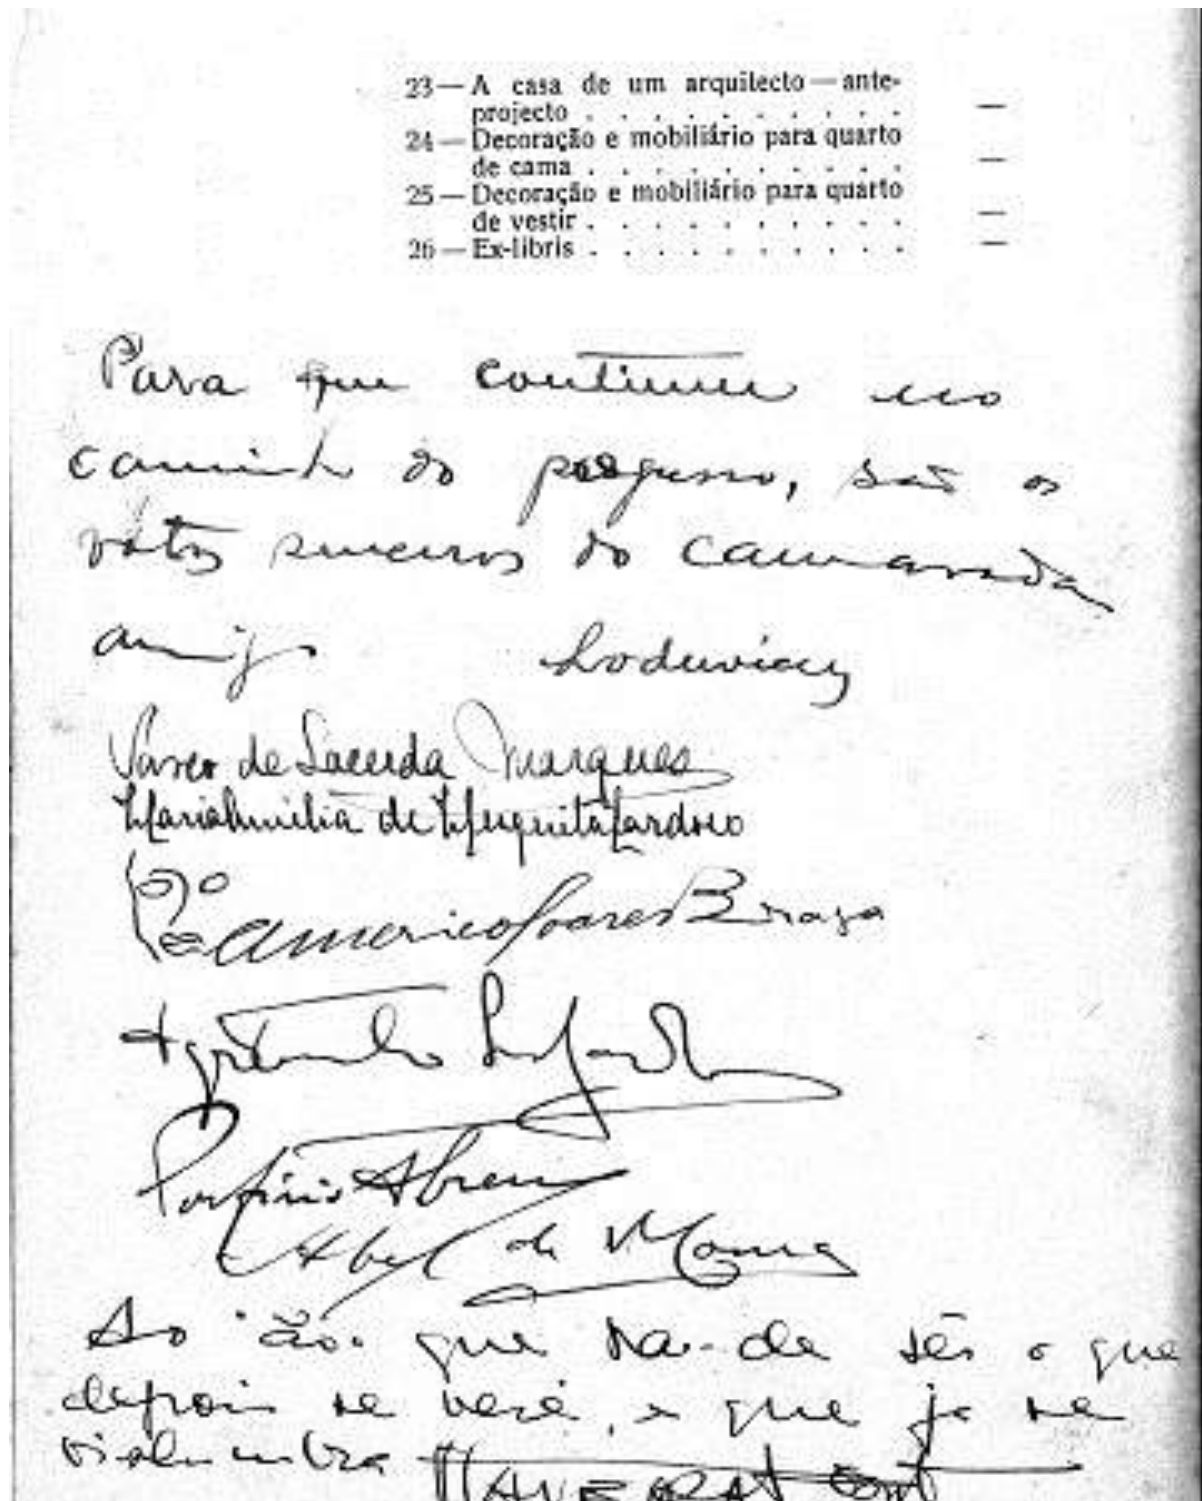 23 — A casa de um arquitecto — ante-
projecto . . . . . . . . . . —
24 — Decoração e mobiliário para quarto
de cama . . . . . . . . . . —
25 — Decoração e mobiliário para quarto
de vestir . . . . . . . . . . —
26 — Ex-libris . . . . . . . . . . —
Para que continue no
caminho do progresso, são os
votos sinceros do camarada
amigo
Vasco de Lacerda Marques
Maria Amelia de Mesquita Cardoso
Americo Soares Braga
Agostinho
Porfirio Abreu
Abel de Moura
Ao que ha-de ser o que
depois se verá, e que já se
vislumbra